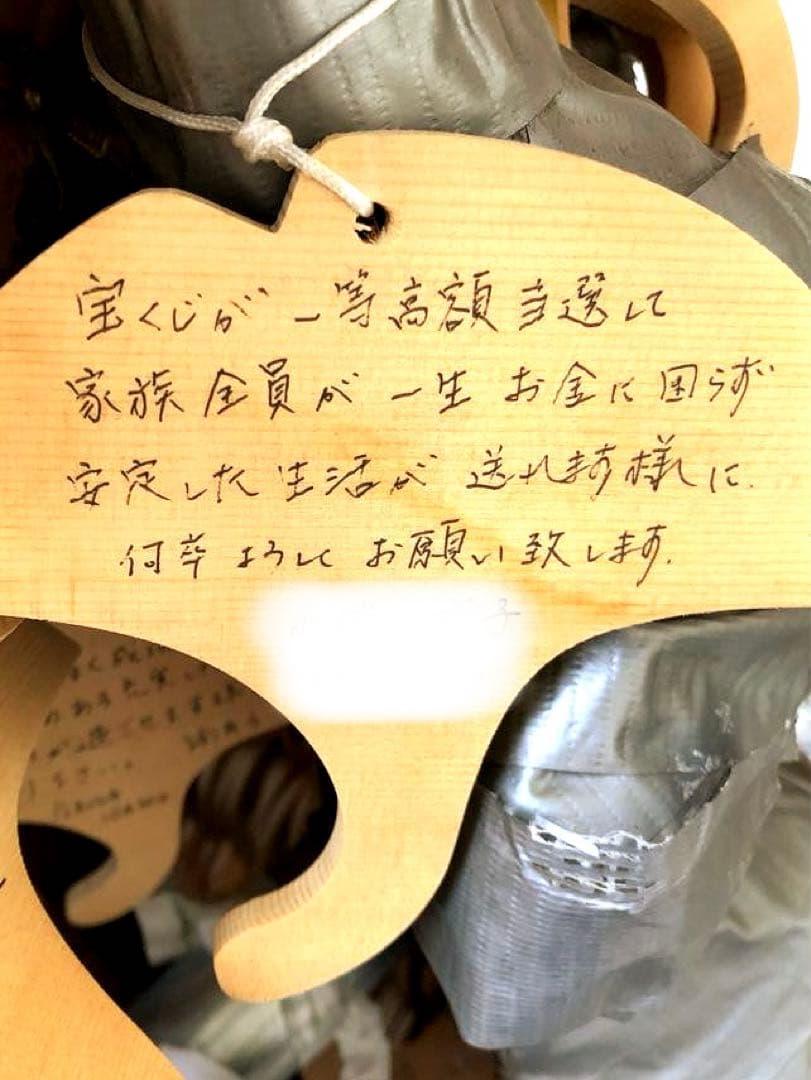 宝くじが一等高額当選して
家族全員が一生お金に困らず
安定した生活が送れます様に.
何卒よろしくお願い致します.
子